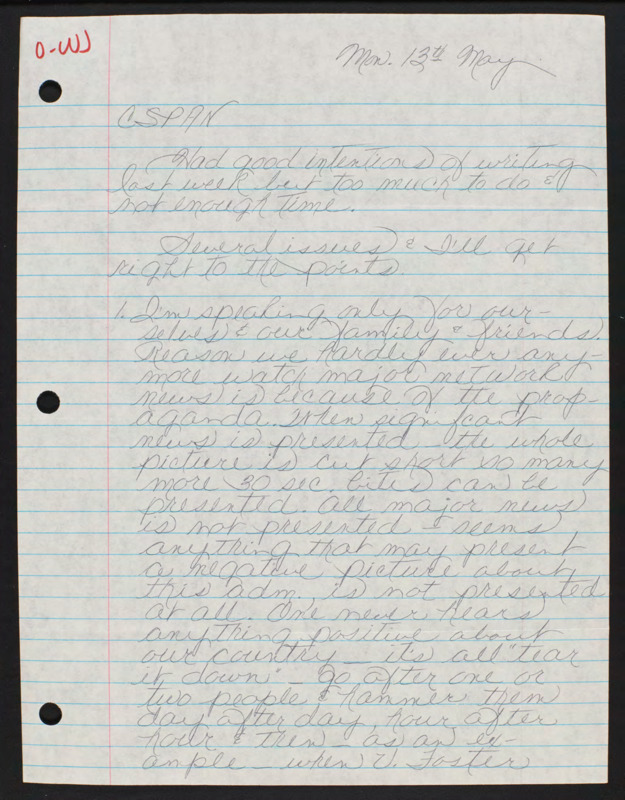 O-W
Mon. 13th May
CSPAN
Had good intentions of writing
last week but too much to do &
not enough time.
Several issues & I'll get
right to the points
1. I'm speaking only for our-
selves & our family & friends.
Reason we hardly ever any-
more watch major network
news is because of the prop-
aganda. When significant
news is presented - the whole
picture is cut short so many
more 30 sec. bites can be
presented. All major news
is not presented - seems
anything that may present
a negative picture about
this adm. is not presented
at all. One never hears
anything positive about
our country - it's all "tear
it down" - go after one or
two people & hammer them
day after day, hour after
hour & then - as an ex-
ample - when V. Foster